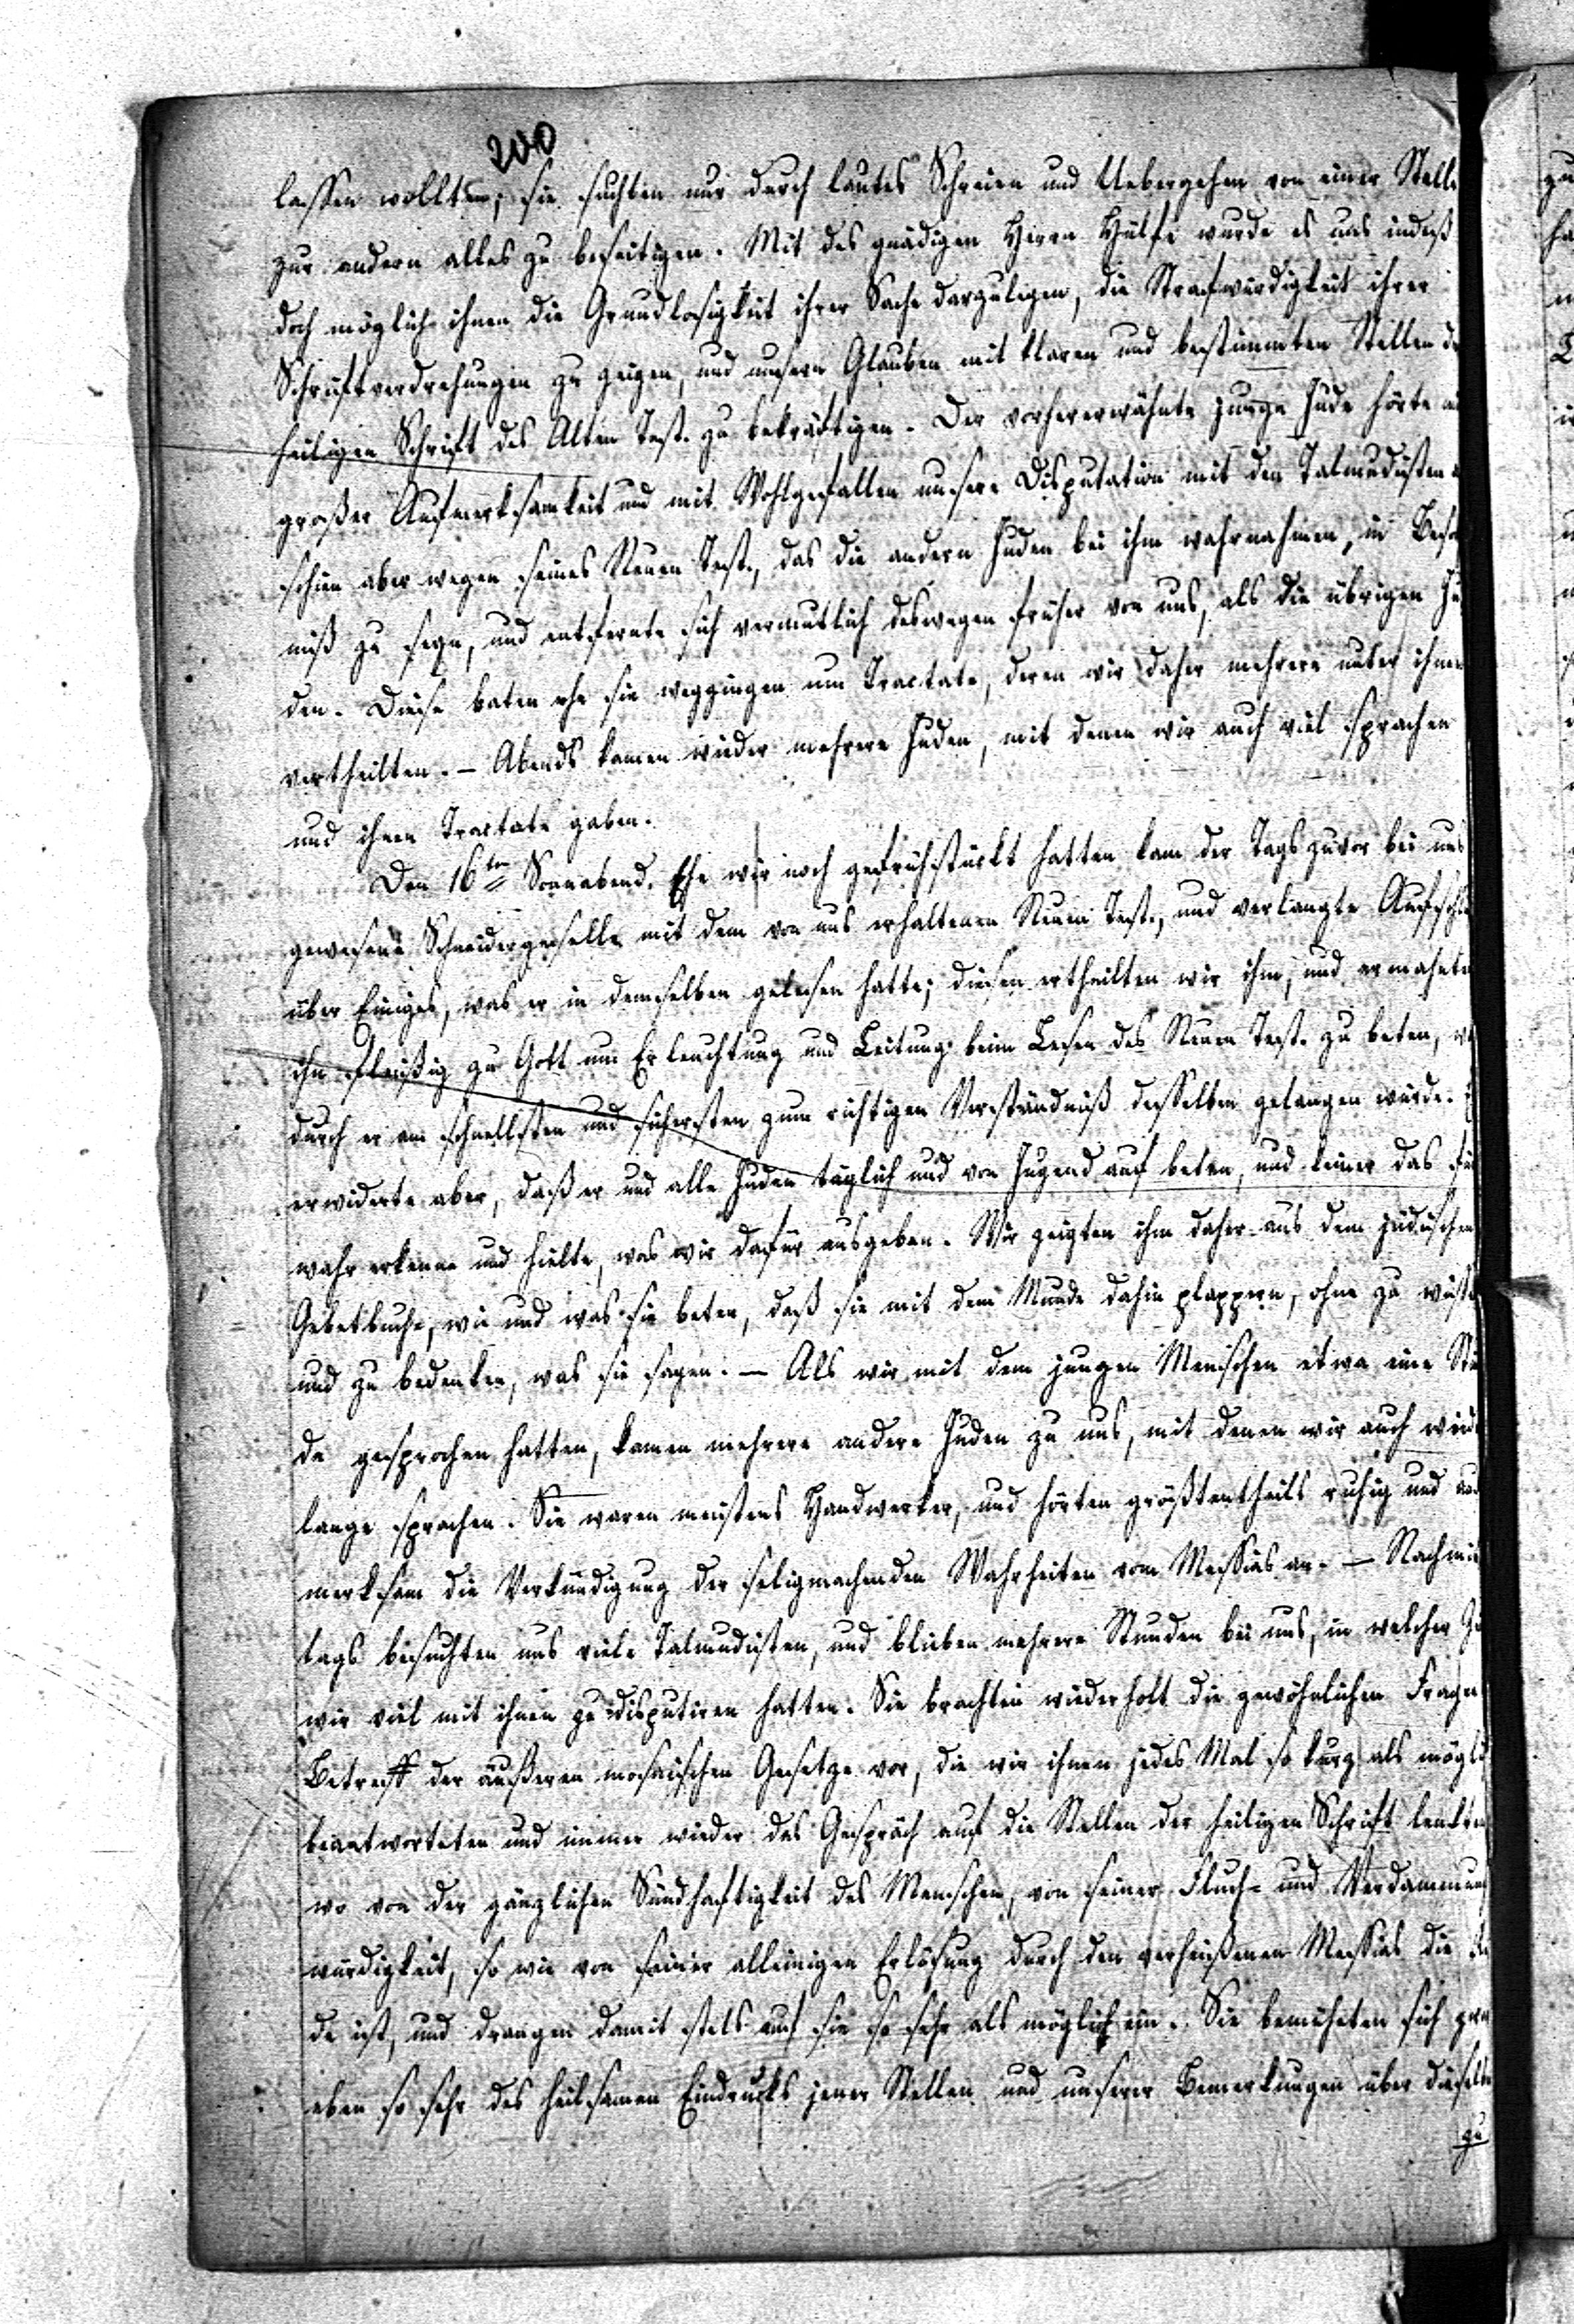 200
lassen wollten; sie suchten nur durch lautes Schreien und Uebergehen von einer Stelle
zur andern alles zu beseitigen. Mit des gnädigen Herrn Hülfe wurde es uns indeß
doch möglich ihnen die Grundlosigkeit ihrer Sache darzulegen, die Strafwürdigkeit ihrer
Schriftverdrehungen zu zeigen, und unsern Glauben mit klaren und bestimmten Stellen de
heiligen Schrift des Alten Test. zu bekräftigen. Der vorhererwähnte junge Jude hörte
großer Aufmerksamkeit und mit Wohlgefallen unsere Disputation mit den Talmudisten
schien aber wegen seines Neuen Test., das die andern Juden bei ihm wahrnahmen, in Besor
niß zu seyn, und entfernte sich vermutlich deswegen früher von uns, als die übrigen Ju
den. Diese baten ehe sie weggingen um Tractate, deren wir daher mehrere unter ihnen
vertheilten. – Abends kamen wieder mehrere Juden, mit denen wir auch viel sprachen
und ihnen Tractate gaben.
Den 16ten Sonnabend. Ehe wir noch gefrühstückt hatten kam der Tags zuvor bei uns
gewesene Schneidergeselle mit dem von uns erhaltenen Neuen Test., und verlangte Aufschlu
über Einiges, was er in demselben gelesen hatte; diesen ertheilten wir ihm, und ermahnten
ihn fleißig zu Gott um Erleuchtung und Leitung beim Lesen des Neuen Test. zu beten, wo
durch er am schnellsten und sichersten zum richtigen Verständniß desselben gelangen würde. E
erwiderte aber, daß er und alle Juden täglich und von Jugend auf beten, und keiner das für
wahr erkenne und hielte, was wir dafür ausgeben. Wir zeigten ihm daher aus dem jüdischen
Gebetbuche, wie und was sie beten, daß sie mit dem Munde dahin plappern, ohne zu wisse
und zu bedenken, was sie sagen. – Als wir mit dem jungen Menschen etwa eine Stu
de gesprochen hatten, kamen mehrere andere Juden zu uns, mit denen wir auch wied
lange sprachen. Sie waren meistens Handwerker, und hörten größtentheils ruhig und auf
merksam die Verkündigung der seligmachenden Wahrheiten vom Messias an. – Nachmit
tags besuchten uns viele Talmudisten, und blieben mehrere Stunden bei uns, in welcher Ze
wir viel mit ihnen zu disputiren hatten. Sie brachten wiederholt die gewöhnlichen Fragen
Betreff der äußeren mosaischen Gesetze vor, die wir ihnen jedes Mal so kurz als mögl
beantworteten und immer wieder das Gespräch auf die Stellen der heiligen Schrift lenkten
wo von der gänzlichen Sündhaftigkeit des Menschen, von seiner Fluch- und Verdammung
würdigkeit, so wie von seiner alleinigen Erlösung durch den verheißenen Messias die Re
de ist, und drangen damit stets auf sie so sehr als möglich ein. Sie bemühten sich zwa
eben so sehr des heilsamen Eindrucks jener Stellen und unserer Bemerkungen über dieselbe
zu